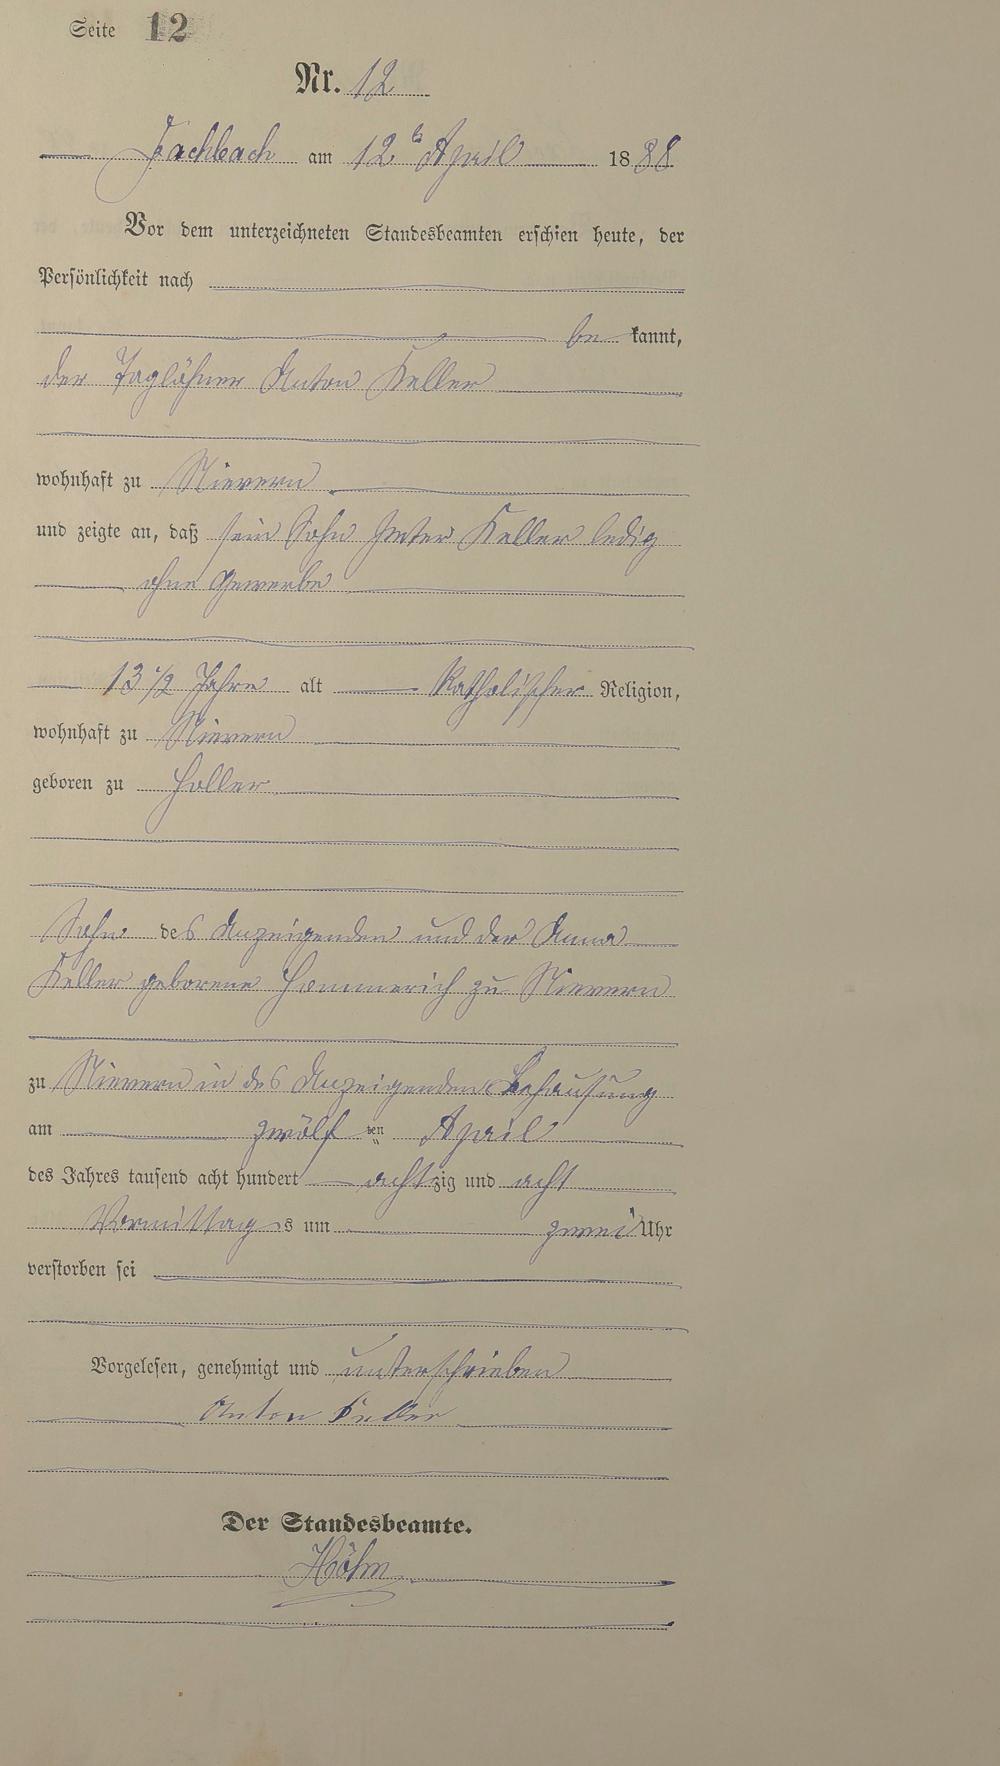 Seite 12
Nr. 12
Fachbach am 12t April 1888
Vor dem unterzeichneten Standesbeamten erschien heute, der
Persönlichkeit nach
be kannt,
der Taglöhner Anton Keller
wohnhaft zu Nievern
und zeigte an, daß sein Sohn Peter Keller ledig
ohne Gewerbe
13 1/2 Jahre alt Katholischer Religion,
wohnhaft zu Nievern
geboren zu Holler
Sohn des Anzeigenden und der Anna
Keller geborene Hommerich zu Nievern
zu Nievern in des Anzeigenden Behausung
am zwölf ten April
des Jahres tausend acht hundert achtzig und acht
Vormittag s um zwei Uhr
verstorben sei
Vorgelesen, genehmigt und unterschrieben
Anton Keller
Der Standesbeamte.